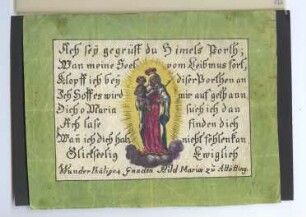 Ach seÿ gegrüst du Himels Porth;
Wan meine Seel vom Leib mus fort,
Klopff ich beÿ diser Porthen an
Ich Hoffes wird mir auf gethann.
Dich o Maria such ich dan
Ach lase finden dich
Wañ ich dich hab nicht fehlen kan
Glickseelig Ewiglich
Wunderthätiges Gnaden Bild Mariæ zu Altötting.